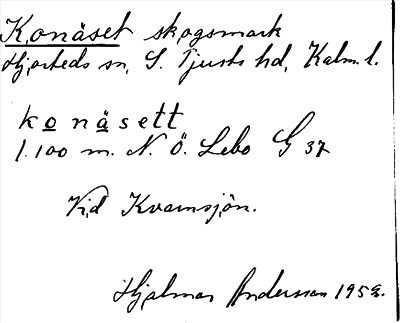 Konäset skogsmark
Hjorteds sn, S. Tjusts hd, Kalm. l.
konäsett
1.100 m. N. Ö. Lebo G 37
Vid Kvarnsjön.
Hjalmar Andersson 1952.